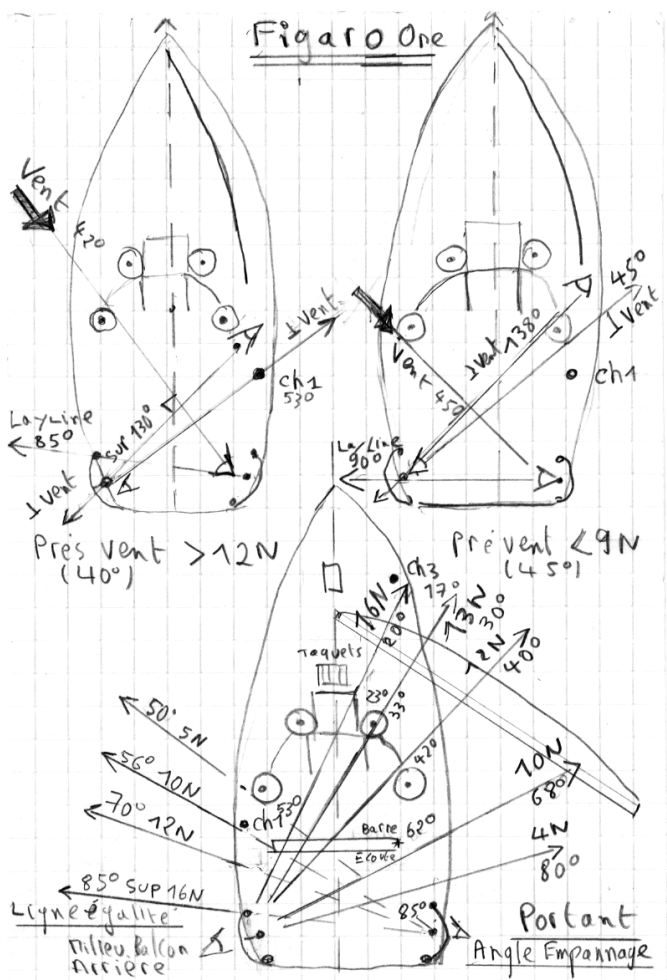 Figaro One
Vent
420
⊥ Vent
ch1
530
Layline
85°
sur 130°
⊥ Vent
Près Vent > 12N
(40°)
45°
⊥ Vent
⊥ Vent 138°
Vent 450
ch1
Layline
90°
Prévent < 9N
(45°)
ch3
16N
200
17°
13N
30°
12N
40°
Taquets
23°
33°
420
50° 5N
56° 10N
70° 12N
53°
ch1
Barre
Ecoute
62°
10N
68°
4N
80°
85° SUP 16N
85°
Ligne égalité
Milieu Balcon
Arrière
Portant
Angle Empannage